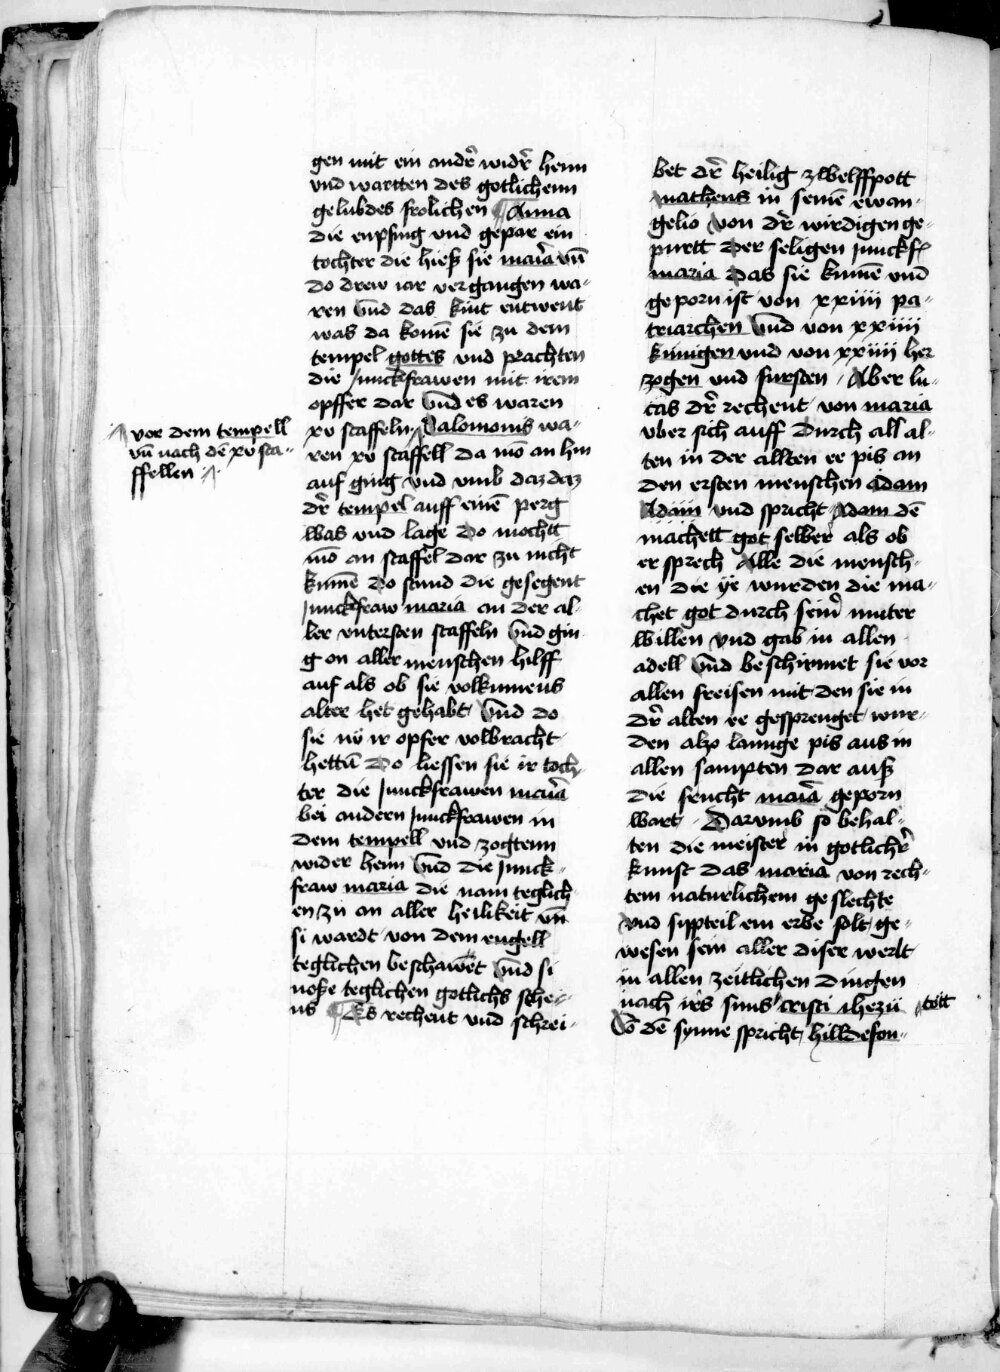 gen mit ein andr̄ widr̄ heim
vnd wartten des gotlichenn
gelubdes frolichen ¶ Anna
die enpfing vnd gepar ein
tochter die hieß sie mai̅a vn̄
do drew iar vergangen wa-
ren Vnd das kint entwent
was da komē sie zu dem
tempel gottes vnd prachten
die Junckfrawen mit irem
opffer dar Vnd es waren
xv staffeln Salomonis wa-
vor dem tempell
vn̄ nach dē xv sta-
ffellen
ren xv staffell da mō an hin
auf ging vnd vmb daz daz
dr̄ tempel auff einē perg
Was vnd lage Do mochtt
mō an staffel dar zu nicht
kumē Do stund die gesegent
Junckfraw maria an der al-
ler vntersten staffeln Vnd gin
g on aller menschen hilff
auf als ob sie volkumens
alter het gehabt Vnd do
sie nv̈ ir opfer volbracht
hettn̄ Do liessen sie ir toch-
ter die Junckfrawen mai̅a
bei andern Junckfrawen in
dem tempell vnd zogtenn
wider heim Vnd die Junck-
fraw maria die nam teglich-
en zu an aller heilikeit vn̄
si wardt von dem engell
teglichen beschawet Vnd si
noße teglichen gotlichs schei-
ns ¶ Es rechent vnd schrei-
bet dr̄ heilig zwelffpott
matheus in seinē ewan-
gelio Von dr̄ wirdigen ge-
purtt Der seligen Junckf
maria Das sie kumē vnd
geporn ist von xxiiii pa-
triarchen Vnd von xxiiii
kunigen vnd von xxiiii her
zogen vnd fursten Aber lu-
cas dr̄ rechent von maria
vber sich auff Durch all al-
ten in der allten ee pis an
den ersten menschen adam
Adam vnd spricht Adam dē
machett got selber als ob
er sprech Alle die mensch-
en die ÿe wurden die ma-
chet got durch seinr̄ muter
willen vnd gab in allen
adell Vnd beschirmet sie vor
allen freisen mit den sie in
dr̄ alten ee gesprenget wur-
den also lannge pis aus in
allen sampten dar auß
die frucht mai̅a geporn
wart Darvmb so behal-
ten die meister in gotlichr̄
kunst das maria von rech-
tem naturlichem geslechte
vnd sypteil ein erbe solt ge-
wesen sein aller diser werlt
in allen zeitlichen dingen
nach irs suns cristi ihezu tott
Vō dē synne spricht hilldefon-